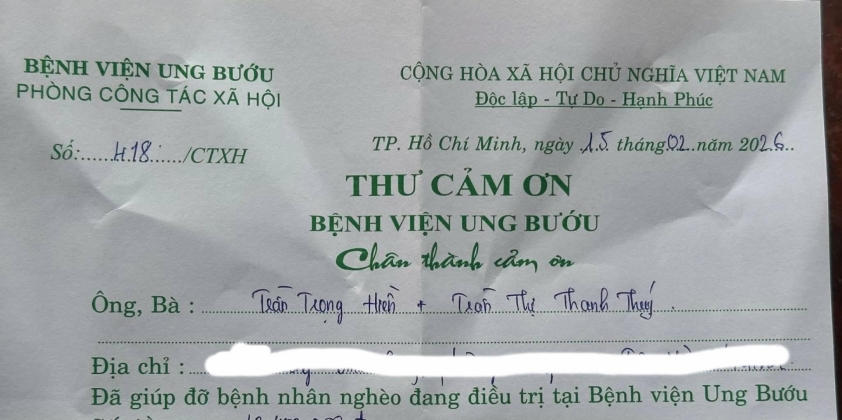 BỆNH VIỆN UNG BƯỚU
PHÒNG CÔNG TÁC XÃ HỘI
Số:......418....../CTXH
CỘNG HÒA XÃ HỘI CHỦ NGHĨA VIỆT NAM
Độc lập - Tự Do - Hạnh Phúc
TP. Hồ Chí Minh, ngày 15 tháng 02 năm 2026..
THƯ CẢM ƠN
BỆNH VIỆN UNG BƯỚU
Chân thành cảm ơn
Ông, Bà : Trần Trọng Hiền + Trần Thị Thanh Thuý
Địa chỉ :
Đã giúp đỡ bệnh nhân nghèo đang điều trị tại Bệnh viện Ung Bướu